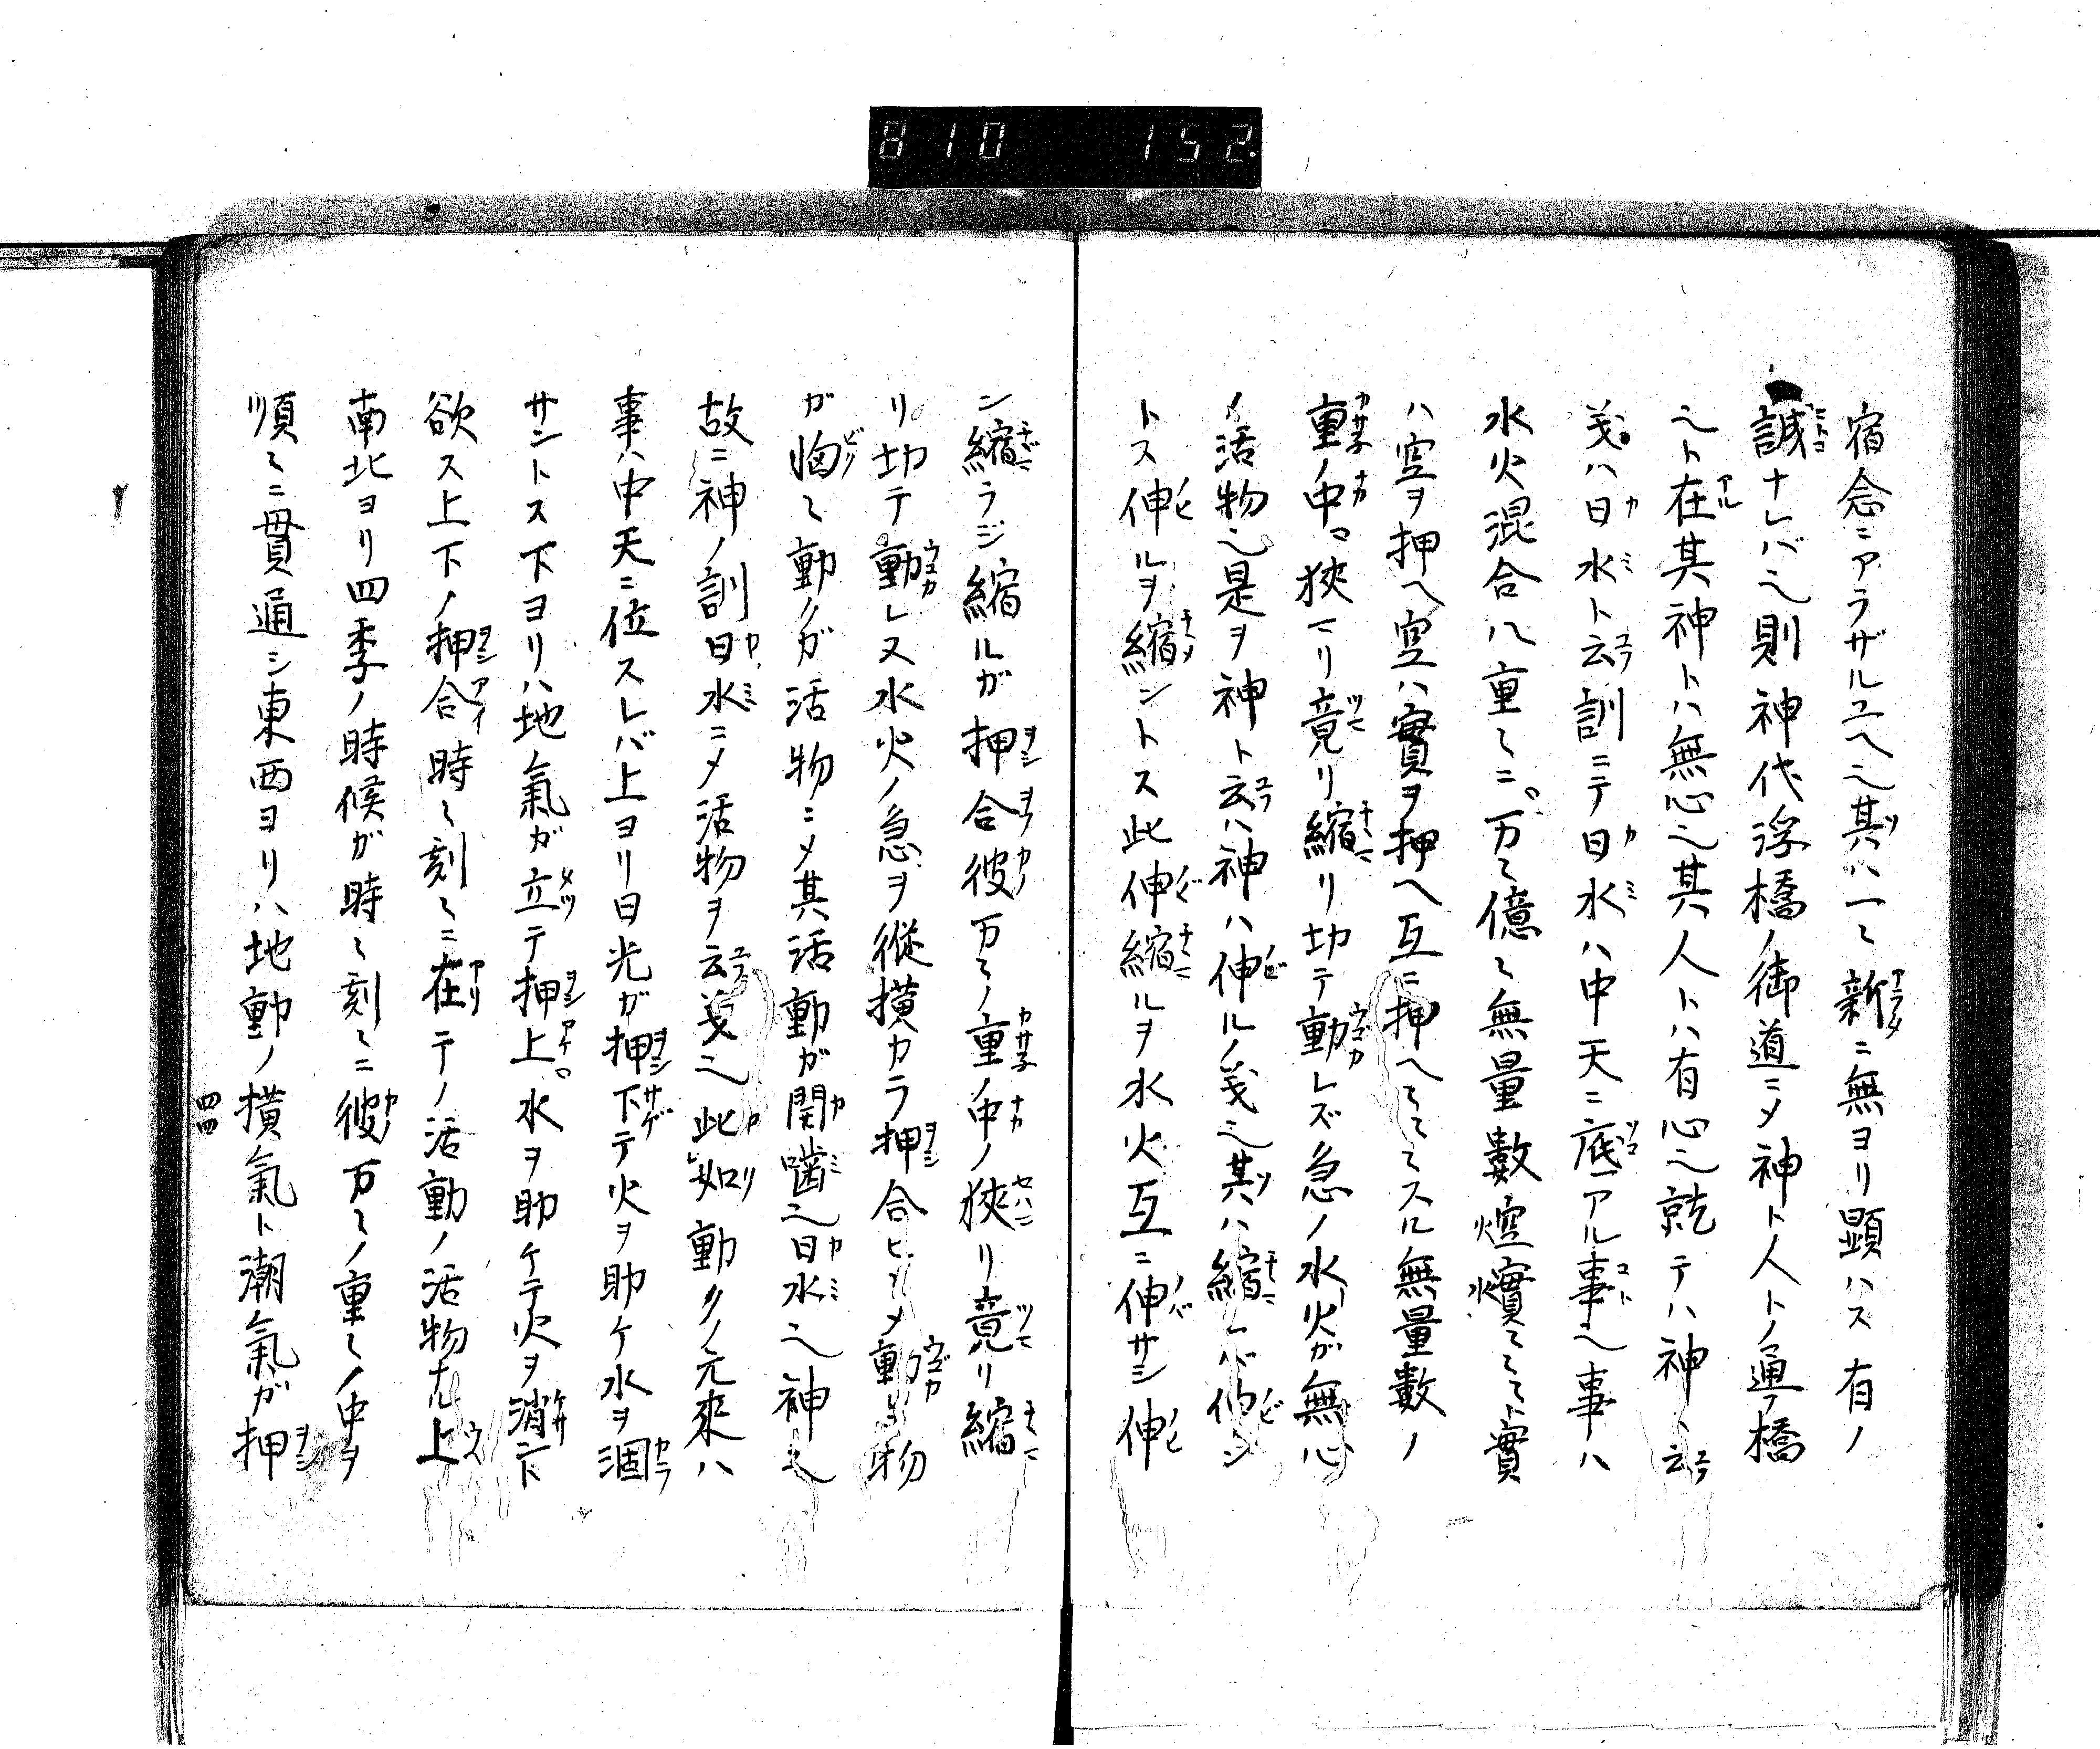 810 152.
宿念ニアラザルユヘ也其ハ一々新ニ無ヨリ顕ハス有ノ
誠ナレバ也則神代浮橋ノ御道ニメ神ト人トノ通フ橋
也ト在其神トハ無心也其人トハ有心也就テハ神ト云
義ハ日水ト云訓ニテ日水ハ中天ニ底アル事也事ハ
水火混合ハ重々ニ万々億々無量數空實々々ト實
ハ空ヲ押ヘ空ハ實ヲ押ヘ互ニ押ヘ々々スル無量數ノ
重ノ中狹マリ竟リ縮リ切テ動レズ急ノ水火ガ無心
ノ活物也是ヲ神ト云ハ神ハ伸ルノ義也其ハ縮レバ伸ン
トス伸ルヲ縮ントス此伸縮ルヲ水火互ニ伸サジ伸
ン縮ラジ縮ルガ押合彼万々ノ重ノ中ノ狹リ竟リ縮
リ切テ動レヌ水火ノ急ヲ縱横カラ押合ヒメ動ヌ物
ガ恟々動クガ活物ニメ其活動ガ開噛也日水也神也
故ニ神ノ訓日水ニメ活物ヲ云義也此如動クノ元來ハ
事ハ中天ニ位スレバ上ヨリ日光ガ押下テ火ヲ助ケ水ヲ涸
サントス下ヨリハ地氣ガ立テ押上水ヲ助ケテ火ヲ消ント
欲ス上下ノ押合時々刻々ニ在テノ活動ノ活物ナル上
南北ヨリ四季ノ時候ガ時々刻々ニ彼万々ノ重々ノ中ヲ
順々ニ貫通シ東西ヨリハ地動ノ横氣ト潮氣ガ押
四四